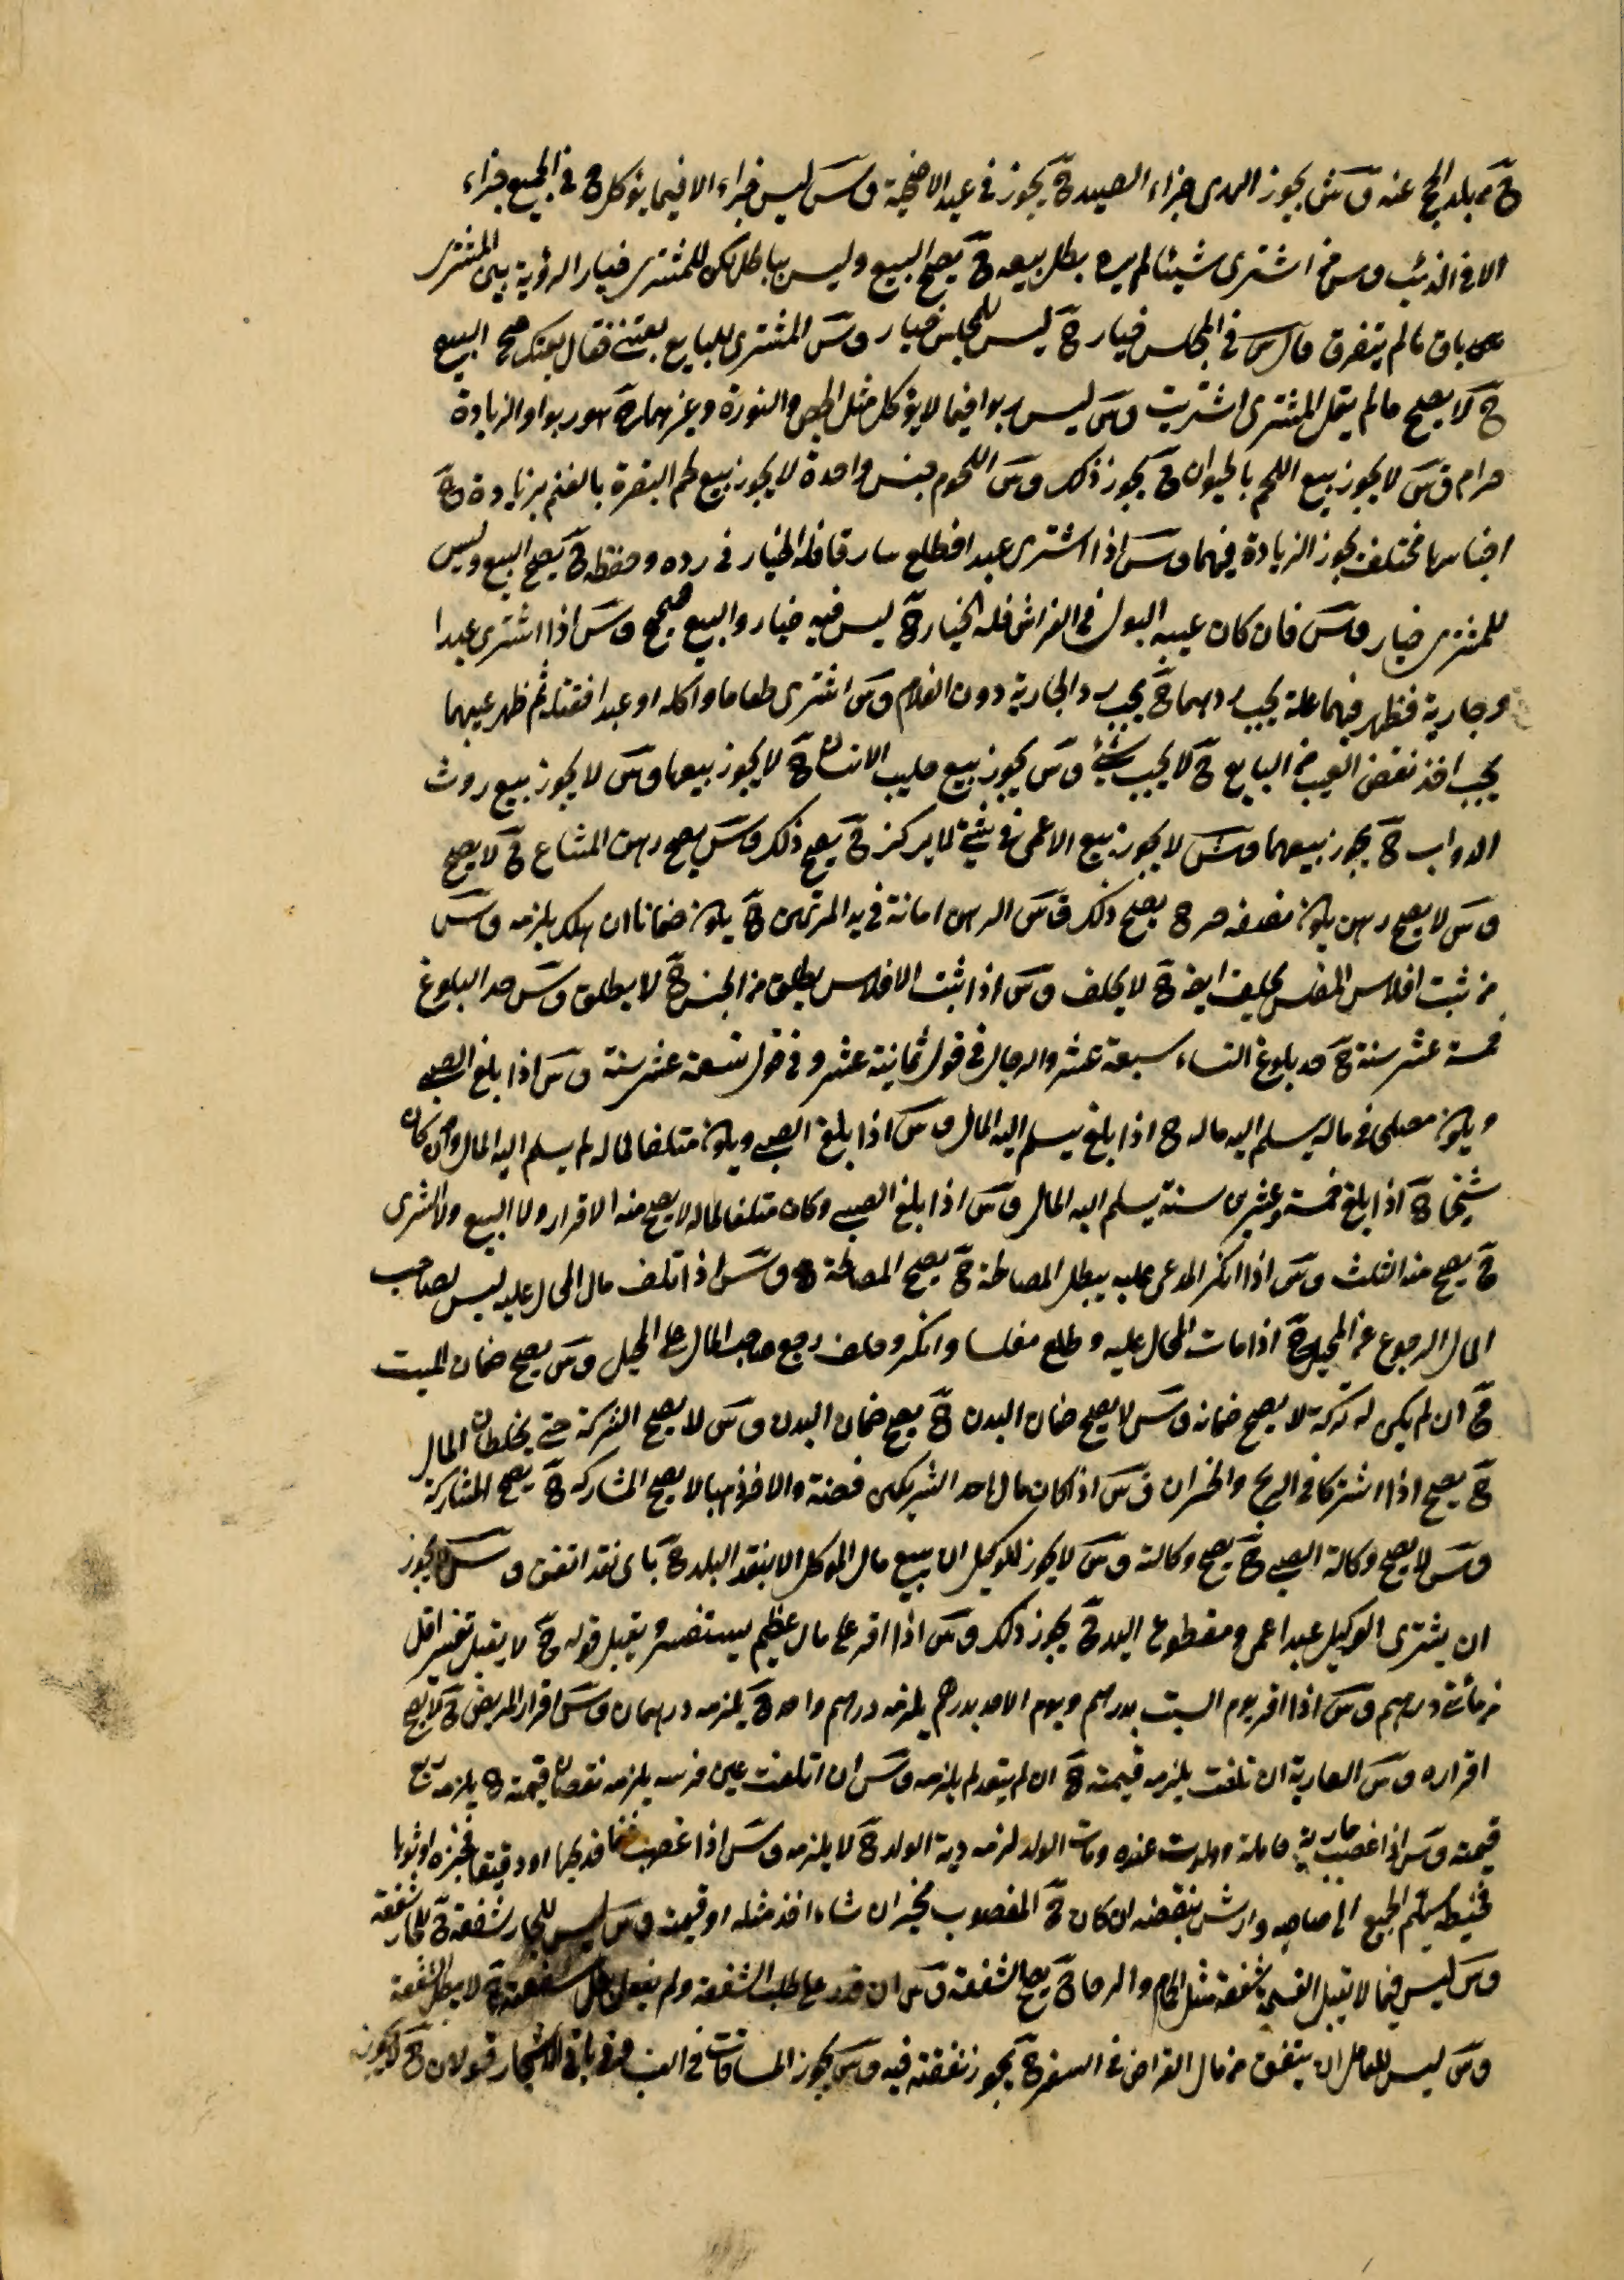 ح من بلد الحج عنه وس يجوز الهدى جزاء الصيد ح يجوز فى عيد الاضحية وس ليس جزاء الا فيما يؤكل ح فى الجميع جزاء
الا فى الذئب وس من اشترى شيئا لم يره بطل بيعه ح يصح البيع وليس بباطل لكن للمشترى خيار الرؤية بين المشترى
باق ما لم يتفرق قال س فى المجلس خيار ح ليس للمجلس خيار وس المشترى للبايع بعتنى فقال بعتك صح البيع
ح لا يصح ما لم يقل المشترى اشتريت وس ليس ربوا فيما لا يؤكل مثل الجص والنورة وغيرهما ح هو ربوا والزيادة
حرام وس لا يجوز بيع اللحم بالحيوان ح يجوز ذلك وس اللحوم جنس واحدة لا يجوز بيع لحم البقرة بالغنم بزيادة ح
اجناسها مختلف يجوز الزيادة فيهما وس اذا اشترى عبدا فطلع سارقا فله الخيار فى رده وحفظه ح يصح البيع وليس
للمشترى خيار وس فان كان عيبه البول فى الفراش فله الخيار ح ليس فيه خيار والبيع صحيح وس اذا اشترى عبدا
وجارية فظهر فيهما علة يجب ردهما ح يجب رد الجارية دون الغلام وس اشترى طعاما واكله او عبدا فقتله ثم ظهر عيبهما
يجب اخذ نقض العيب من البايع ح لا يجب شئ وس يجوز بيع حليب الانسان ح لا يجوز بيعها وس لا يجوز بيع روث
الدواب ح يجوز بيعهما وس لا يجوز بيع الاعمى فى شئ لم ير ح يصح ذلك وس يصح رهن المشاع ح لا يصح
وس لا يصح رهن يكون نصفه حر ح يصح ذلك وس الرهن امانة فى يد المرتهن ح يكون ضمانا ان هلك يلزمه وس
من ثبت افلاس المفلس يحلف ايضا ح لا يحلف وس اذا ثبت الافلاس يطلق من الحبس ح لا يطلق وس حد البلوغ
خمسة عشر سنة ح حد بلوغ النساء سبعة عشر والرجال فى قول ثمانية عشر وفى قول تسعة عشر سنة وس اذا بلغ الصبى
ويكون مصلحى فى ماله يسلم اليه ماله ح اذا بلغ يسلم اليه المال وس اذا بلغ الصبى ويكون متلفا لماله لم يسلم اليه المال وان كان
شيخا ح اذا بلغ خمسة وعشرين سنة يسلم اليه المال وس اذا بلغ الصبى وكان متلفا لماله لا يصح منه الاقرار ولا البيع ولا الشرى
ح يصح منه الثلث وس اذا انكر المدعى عليه يبطل المصالحة ح يصح المصالحة وس اذا تلف مال المحال عليه ليس لصاحب
المال الرجوع على المحيل ح اذا مات المحال عليه وطلع مفلسا وانكر وحلف رجع صاحب المال على المحيل وس يصح ضمان الميت
ح ان لم يكن له تركة لا يصح ضمانه وس لا يصح ضمان البدن ح يصح ضمان البدن وس لا يصح الشركة حتى يخلطان المال
ح يصح اذا اشتركا فى الربح والخسران وس اذا كان مال احد الشريكين فضة والاخر ذهبا لا يصح المشاركة ح يصح المشاركة
وس لا يصح وكالة الصبى ح يصح وكالته وس لا يجوز للوكيل ان يبيع مال الموكل الا بنقد البلد ح باى نقد اتفق وس لا يجوز
ان يشترى الوكيل عبدا اعمى ومقطوع اليد ح يجوز ذلك وس اذا اقر على مال عظيم يستفسر ويقبل قوله ح لا يقبل تفسير اقل
من مائة درهم وس اذا اقر يوم السبت بدرهم ويوم الاحد بدرهم يلزمه درهم واحد ح يلزمه درهمان وس اقرار المريض ح لا يصح
اقراره وس العارية ان تلفت يلزمه قيمته ح ان لم يتعد لم يلزمه وس ان اتلفت عين فرسه يلزمه نقصان قيمته ح يلزمه ربع
قيمته وس اذا غصب جارية حاملة وولدت عنده ومات الولد لزمه دية الولد ح لا يلزمه وس اذا غصب غنما فذبحها او دقيقا فخبزه او ثوبا
فخيطه يسلم الجميع الى صاحبه وارش بنقصه ان كان ح المغصوب مخير ان شاء اخذ مثله او قيمته وس ليس للجار شفعة ح للجار شفعة
وس ليس فيما لا يقبل القسمة شفعة مثل الحمام والرحا ح يصح الشفعة وس ان قدر على طلب الشفعة ولم يفعل بطل شفعته ح لا يبطل الشفعة
وس ليس للعامل ان ينفق من مال القراض فى السفر ح يجوز نفقته فيه وس يجوز المساقات فى العنب وفى باقى الاشجار قولان ح لا يجوز